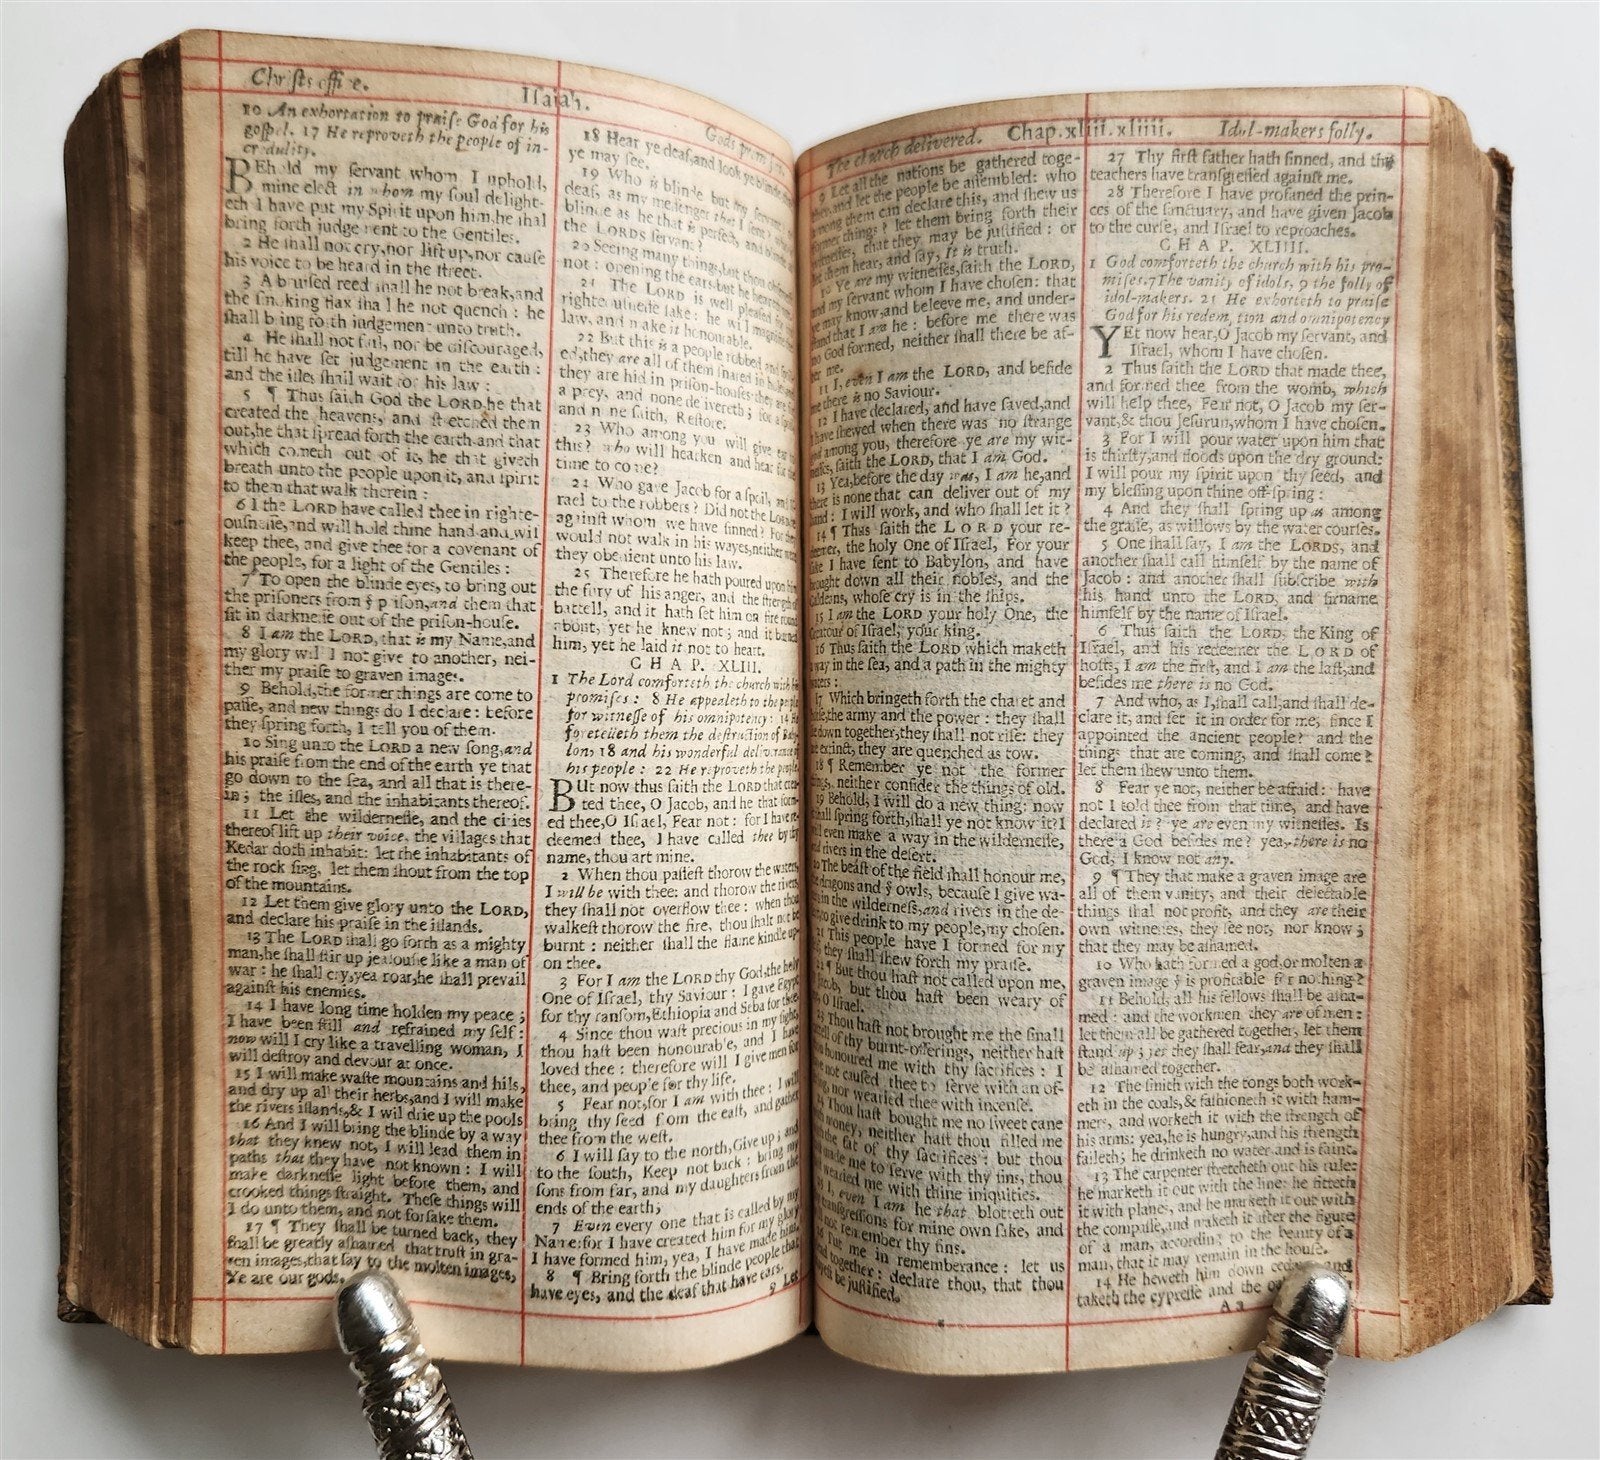 Christs office.
Isaiah.
10 An exhortation to praise God for his
gospel. 17 He reproveth the people of in-
credulity.
BEhold my servant whom I uphold,
mine elect in whom my soul delight-
eth I have put my Spirit upon him, he shal
bring forth judgement to the Gentiles.
2 He shall not cry, nor lift up, nor cause
his voice to be heard in the street.
3 A bruised reed shall he not break, and
the smoking flax shall he not quench : he
shall bring forth judgement unto truth.
4 He shall not fail, nor be discouraged,
till he have set judgement in the earth :
and the isles shall wait for his law :
5 ¶ Thus saith God the LORD, he that
created the heavens, and stretched them
out, he that spread forth the earth and that
which cometh out of it, he that giveth
breath unto the people upon it, and spirit
to them that walk therein :
6 I the LORD have called thee in righte-
ousnesse, and will hold thine hand and wil
keep thee, and give thee for a covenant of
the people, for a light of the Gentiles :
7 To open the blinde eyes, to bring out
the prisoners from ye prison, and them that
sit in darknesse out of the prison-house.
8 I am the LORD, that is my Name, and
my glory will I not give to another, nei-
ther my praise to graven images.
9 Behold, the former things are come to
passe, and new things do I declare : before
they spring forth, I tell you of them.
10 Sing unto the LORD a new song, and
his praise from the end of the earth ye that
go down to the sea, and all that is there-
in ; the isles, and the inhabitants thereof.
11 Let the wildernesse, and the cities
thereof lift up their voice, the villages that
Kedar doth inhabit: let the inhabitants of
the rock sing, let them shout from the top
of the mountains.
12 Let them give glory unto the LORD,
and declare his praise in the islands.
13 The LORD shall go forth as a mighty
man, he shall stir up jealousie like a man of
war : he shall cry, yea roar, he shall prevail
against his enemies.
14 I have long time holden my peace ;
I have been still and refrained my self :
now will I cry like a travelling woman, I
will destroy and devour at once.
15 I will make waste mountains and hils,
and dry up all their herbs, and I will make
the rivers islands, & I wil drie up the pools
16 And I will bring the blinde by a way
that they knew not, I will lead them in
paths that they have not known : I will
make darknesse light before them, and
crooked things straight. These things will
I do unto them, and not forsake them.
17 ¶ They shall be turned back, they
shall be greatly ashamed that trust in gra-
ven images, that say to the molten images,
Ye are our gods.
Gods
18 Hear ye deaf, and look ye blinde
ye may see.
19 Who is blinde but my servant
deaf, as my messenger that I sent
blinde as he that is perfect, and blinde
the LORDS servant?
20 Seeing many things, but thou
not : opening the ears but he heareth
21 The LORD is well pleased for
righteousnesse sake : he wil magnifie
law, and make it honourable.
22 But this is a people robbed and
ed, they are all of them snared in
they are hid in prison-houses : they are for
a prey, and none delivereth ; for a
and none saith, Restore.
23 Who among you will give ear
this? who will hearken and hear for the
time to come?
24 Who gave Jacob for a spoil, and
rael to the robbers? Did not the
against whom we have sinned? For they
would not walk in his wayes, neither were
they obedient unto his law.
25 Therefore he hath poured upon him
the fury of his anger, and the strength of
battell, and it hath set him on fire round
about, yet he knew not ; and it burned
him, yet he laid it not to heart.
CHAP. XLIII.
1 The Lord comforteth the church with his
promises : 8 He appealeth to the people
for witnesse of his omnipotency : 14 He
foretelleth them the destruction of Baby-
lon, 18 and his wonderful deliverance of
his people : 22 He reproveth the people
BUt now thus saith the LORD that crea-
ted thee, O Jacob, and he that form-
ed thee, O Israel, Fear not : for I have re-
deemed thee, I have called thee by thy
name, thou art mine.
2 When thou passest thorow the waters,
I will be with thee: and thorow the rivers,
they shall not overflow thee : when thou
walkest thorow the fire, thou shalt not be
burnt : neither shall the flame kindle up-
on thee.
3 For I am the LORD thy God, the holy
One of Israel, thy Saviour : I gave Egypt
for thy ransom, Ethiopia and Seba for thee.
4 Since thou wast precious in my sight,
thou hast been honourable, and I have
loved thee : therefore will I give men for
thee, and people for thy life.
5 Fear not, for I am with thee : I will
bring thy seed from the east, and gather
thee from the west.
6 I will say to the north, Give up ; and
to the south, Keep not back : bring my
sons from far, and my daughters from the
ends of the earth ;
7 Even every one that is called by my
Name: for I have created him for my glory
I have formed him, yea, I have made him.
8 ¶ Bring forth the blinde people that
have eyes, and the deaf that have ears.
9 Let
The church delivered. Chap. xliii. xliiii. Idol-makers folly.
9 Let all the nations be gathered toge-
ther, and let the people be assembled: who
among them can declare this, and shew us
former things? let them bring forth their
witnesses, that they may be justified : or
let them hear, and say, It is truth.
10 Ye are my witnesses, saith the LORD,
and my servant whom I have chosen: that
ye may know, and beleeve me, and under-
stand that I am he : before me there was
no God formed, neither shall there be af-
ter me.
11 I, even I am the LORD, and beside
me there is no Saviour.
12 I have declared, and have saved, and
I have shewed when there was no strange
god among you, therefore ye are my wit-
nesses, saith the LORD, that I am God.
13 Yea, before the day was, I am he, and
there is none that can deliver out of my
hand : I will work, and who shall let it?
14 ¶ Thus saith the LORD your re-
deemer, the holy One of Israel, For your
sake I have sent to Babylon, and have
brought down all their nobles, and the
Caldeans, whose cry is in the ships.
15 I am the LORD your holy One, the
Creatour of Israel, your king.
16 Thus saith the LORD which maketh
a way in the sea, and a path in the mighty
waters :
17 Which bringeth forth the charet and
horse, the army and the power : they shall
lie down together, they shall not rise: they
are extinct, they are quenched as tow.
18 ¶ Remember ye not the former
things, neither consider the things of old.
19 Behold, I will do a new thing: now
it shall spring forth, shall ye not know it? I
will even make a way in the wildernesse,
and rivers in the desert.
20 The beast of the field shall honour me,
the dragons and ye owls, because I give wa-
ters in the wildernesse, and rivers in the de-
sert, to give drink to my people, my chosen.
21 This people have I formed for my
self, they shall shew forth my praise.
22 ¶ But thou hast not called upon me,
O Jacob, but thou hast been weary of
me, O Israel.
23 Thou hast not brought me the small
cattell of thy burnt-offerings, neither hast
thou honoured me with thy sacrifices : I
have not caused thee to serve with an of-
fering, nor wearied thee with incense.
24 Thou hast bought me no sweet cane
with money, neither hast thou filled me
with the fat of thy sacrifices : but thou
hast made me to serve with thy sins, thou
hast wearied me with thine iniquities.
25 I, even I am he that blotteth out
thy transgressions for mine own sake, and
will not remember thy sins.
26 Put me in rememberance : let us
plead together : declare thou, that thou
mayest be justified.
27 Thy first father hath sinned, and thy
teachers have transgressed against me.
28 Therefore I have profaned the prin-
ces of the sanctuary, and have given Jacob
to the curse, and Israel to reproaches.
CHAP. XLIIII.
1 God comforteth the church with his pro-
mises. 7 The vanity of idols, 9 the folly of
idol-makers. 21 He exhorteth to praise
God for his redemtion and omnipotency
YEt now hear, O Jacob my servant, and
Israel, whom I have chosen.
2 Thus saith the LORD that made thee,
and formed thee from the womb, which
will help thee, Fear not, O Jacob my ser-
vant, & thou Jesurun, whom I have chosen.
3 For I will pour water upon him that
is thirsty, and floods upon the dry ground:
I will pour my spirit upon thy seed, and
my blessing upon thine off-spring :
4 And they shall spring up as among
the grasse, as willows by the water courses.
5 One shall say, I am the LORDS, and
another shall call himself by the name of
Jacob : and another shall subscribe with
his hand unto the LORD, and sirname
himself by the name of Israel.
6 Thus saith the LORD, the King of
Israel, and his redeemer the LORD of
hosts, I am the first, and I am the last, and
besides me there is no God.
7 And who, as I, shall call, and shall de-
clare it, and set it in order for me, since I
appointed the ancient people? and the
things that are coming, and shall come?
let them shew unto them.
8 Fear ye not, neither be afraid : have
not I told thee from that time, and have
declared it? ye are even my witnesses. Is
there a God besides me? yea, there is no
God, I know not any.
9 ¶ They that make a graven image are
all of them vanity, and their delectable
things shal not profit, and they are their
own witnesses, they see not, nor know ;
that they may be ashamed.
10 Who hath formed a god, or molten a
graven image yt is profitable for nothing?
11 Behold, all his fellows shall be asha-
med : and the workmen they are of men :
let them all be gathered together, let them
stand up ; yet they shall fear, and they shall
be ashamed together.
12 The smith with the tongs both work-
eth in the coals, & fashioneth it with ham-
mers, and worketh it with the strength of
his arms: yea, he is hungry, and his strength
faileth; he drinketh no water and is faint.
13 The carpenter stretcheth out his rule:
he marketh it out with the line: he fitteth
it with planes, and he marketh it out with
the compasse, and maketh it after the figure
of a man, according to the beauty of a
man, that it may remain in the house.
14 He heweth him down and
taketh the cypresse and the
A a